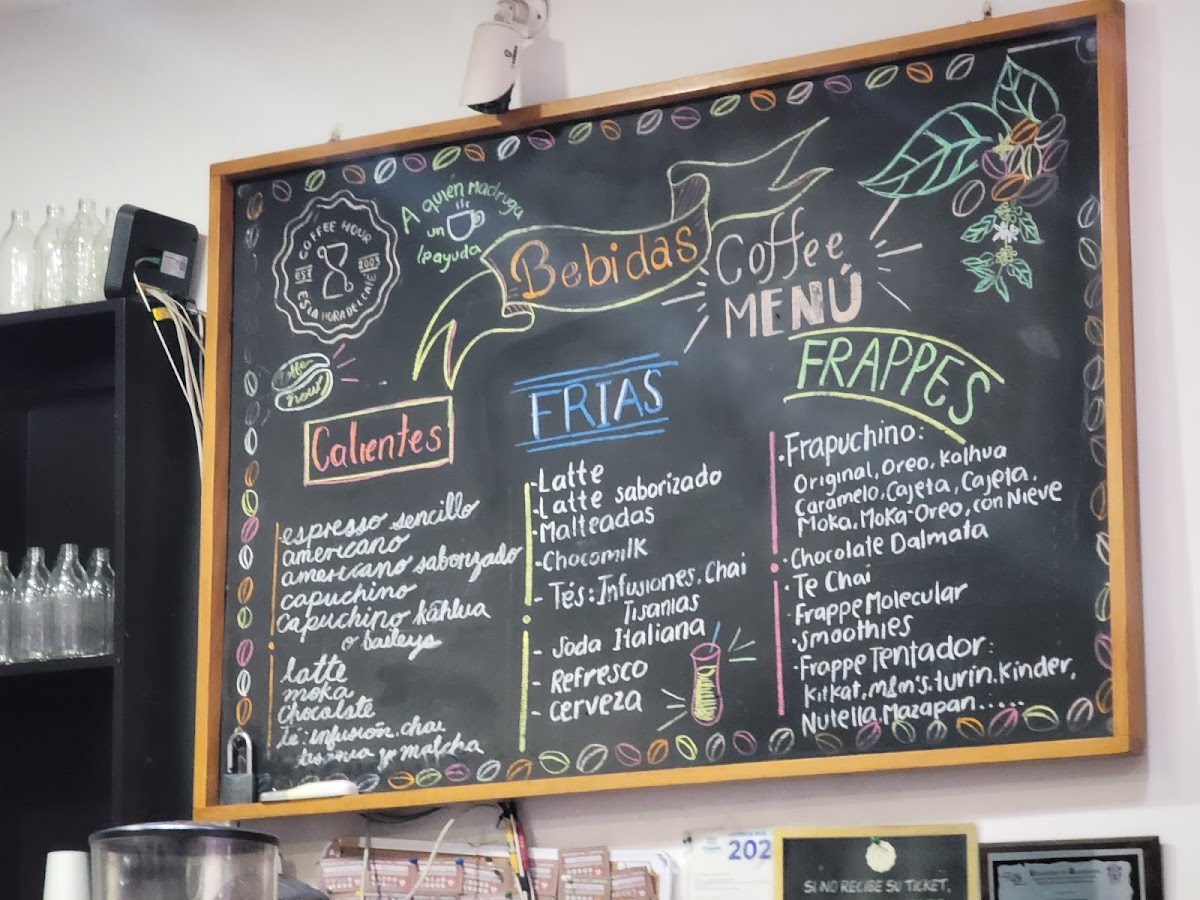 COFFEE HOUR
EST 2003
ES LA HORA DEL CAFÉ
A quién Madruga
un
le ayuda
Bebidas
Coffee
MENÚ
Coffee
Hour
Calientes
espresso sencillo
americano
americano saborizado
capuchino
capuchino kahlua
o baileys
latte
moka
chocolate
té: infusión, chai
tisania y matcha
FRIAS
-Latte
-Latte saborizado
-Malteadas
-Chocomilk
- Tés: Infusiones, Chai
Tisanias
- Soda Italiana
- Refresco
- cerveza
FRAPPES
·Frapuchino:
Original, Oreo, Kalhua
Caramelo, Cajeta, Cajeta,
Moka, Moka-Oreo, con Nieve
·Chocolate Dalmata
·Te Chai
·Frappe Molecular
·Smoothies
·Frappe Tentador:
Kitkat, m&m's, turin, Kinder,
Nutella, Mazapan.....
202
SI NO RECIBE SU TICKET,